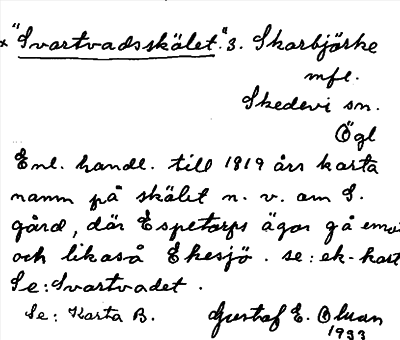 x "Svartvadsskälet." 3. Skarbjörke
mfl.
Skedevi sn.
Ögl
Enl. handl. till 1819 års karta
namn på skälet n. v. om S.
gård, där Espetorps ägor gå emot
och likaså Ekesjö. se: ek-kart
Se: Svartvadet.
Se: Karta B. Gustaf E. Olsson
1933